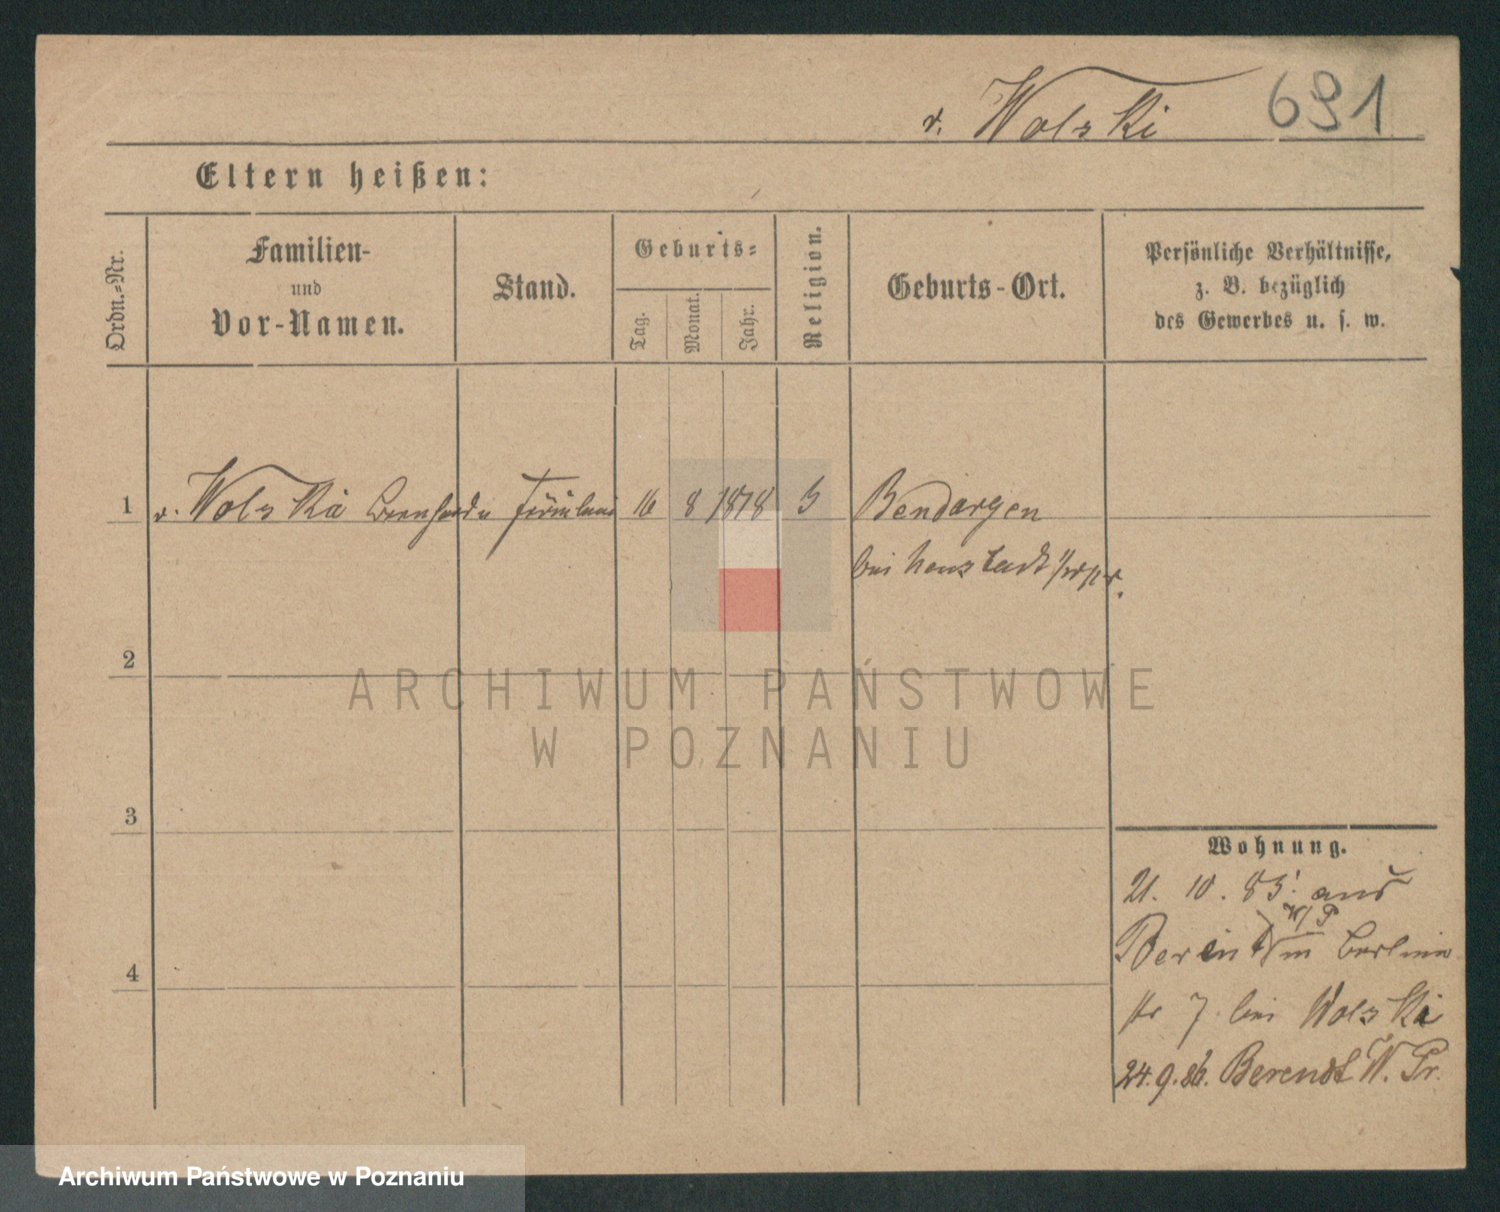 v. Wolski 691
Eltern heißen:
Ordn.-Nr.
Familien-
und
Vor-Namen.
Stand.
Geburts-
Tag.
Monat.
Jahr.
Religion.
Geburts-Ort.
Persönliche Verhältnisse,
z. B. bezüglich
des Gewerbes u. s. w.
1 v. Wolska Fräulein 16 8 1878 Bendargen
bei Neustadt
2
3
4
Wohnung.
21. 10. 85. aus
W/P
Berent Berliner
str 7 bei Wolski
24.9.86. Berendt W. Pr.
ARCHIWUM PAŃSTWOWE
W POZNANIU
Archiwum Państwowe w Poznaniu